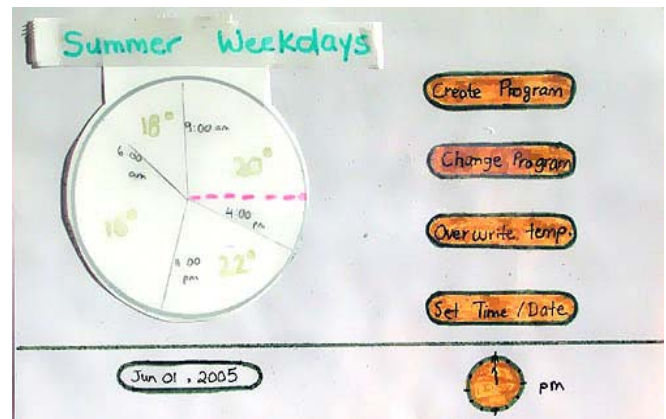 Summer Weekdays
18°
9:00 am
20°
6:00
am
4:00
pm
16°
22°
pm
Create Program
Change Program
Overwrite temp.
Set Time/Date
Jun 01, 2005
pm